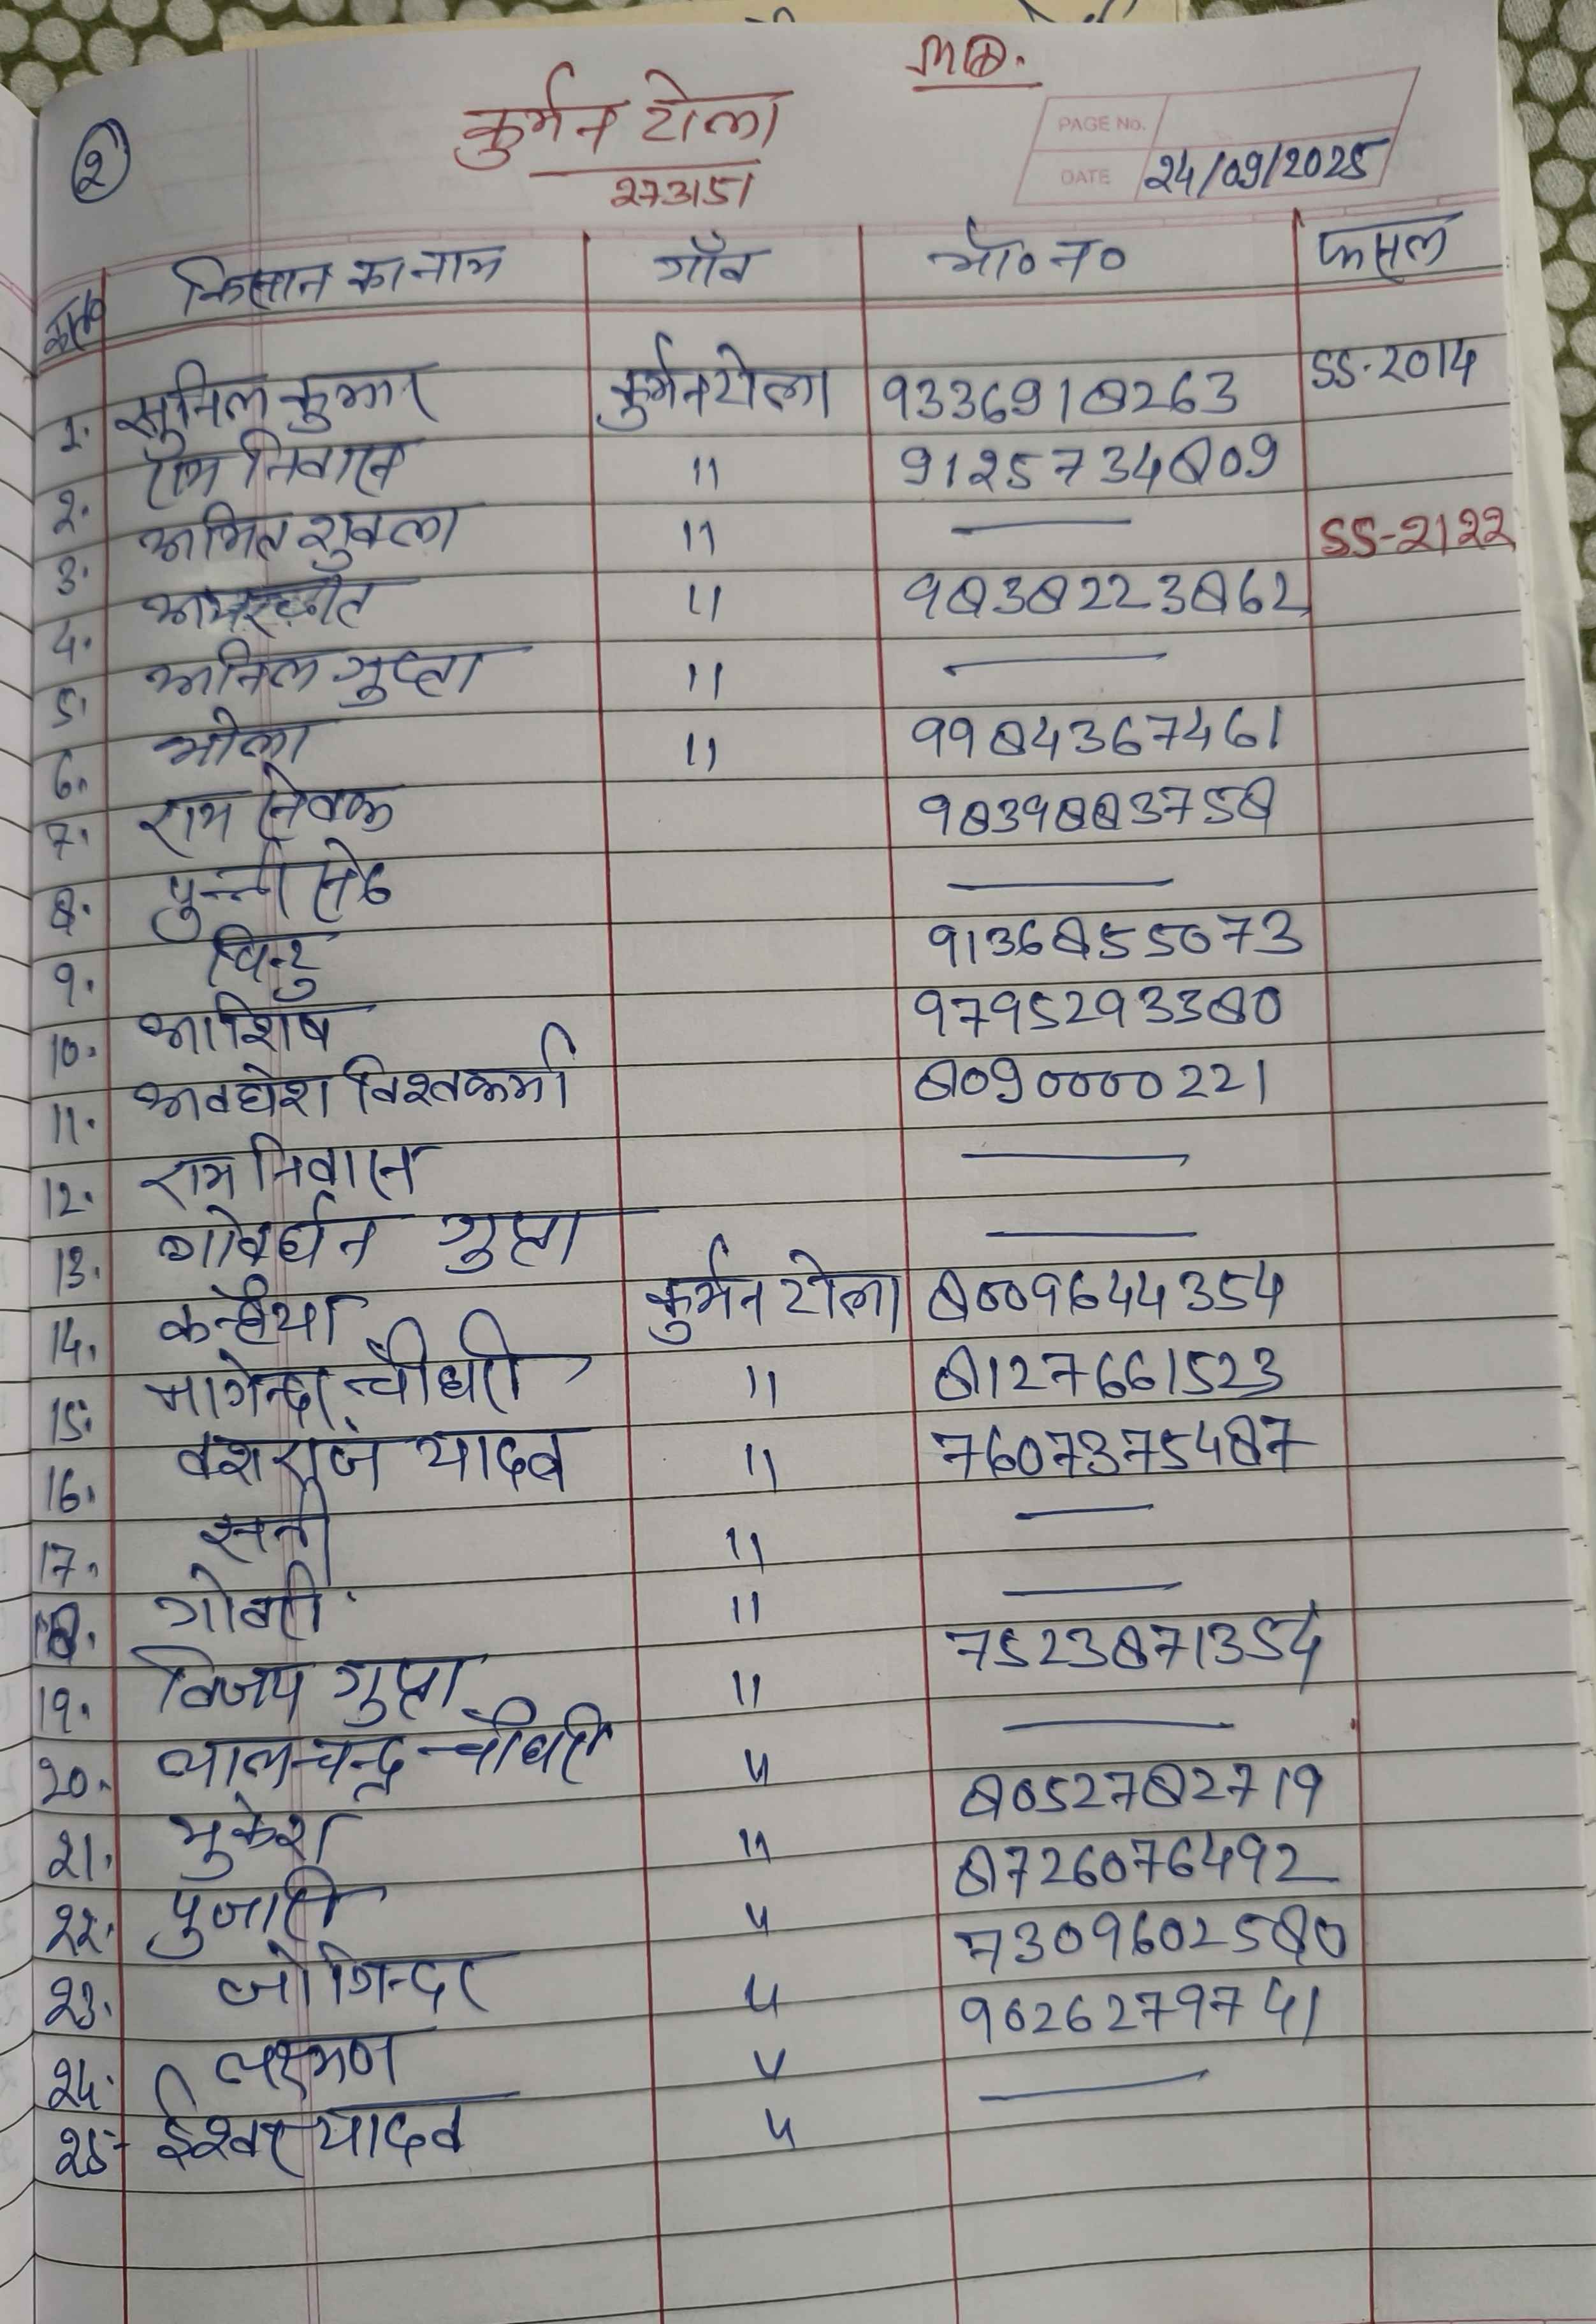 MD.
कुर्मन टोला
273151
2
PAGE No.
DATE 24/09/2025
क्र०सं० किसान का नाम गाँव मो० न० फसल
1. सुनिल कुमार कुर्मनटोला 9336918263 SS-2014
2. राम निवास 11 9125734809
3. अमित शुक्ला 11 — SS-2122
4. अमरजीत 11 9838223862
5. अनिल गुप्ता 11 —
6. भोला 11 9984367461
7. राम सेवक 9839883758
8. पुन्नी सेठ —
9. चिन्टु 9136855073
10. आशिष 9795293380
11. अवधेश विश्वकर्मा 8090000221
12. राम निवास —
13. गोवर्धन गुप्ता —
14. कन्हैया कुर्मन टोला 8009644354
15. नागेन्दर चौधरी 11 8127661523
16. वंशराज यादव 11 7607375487
17. सनी 11 —
18. गोबरी 11 —
19. विजय गुप्ता 11 7523871354
20. लालचन्द्र चौधरी 11 —
21. मुकेश 11 8052782719
22. पुजारी 11 8726076492
23. जोगिन्दर 11 7309602580
24. लक्ष्मण 11 9026279741
25- ईश्वर यादव 11 —